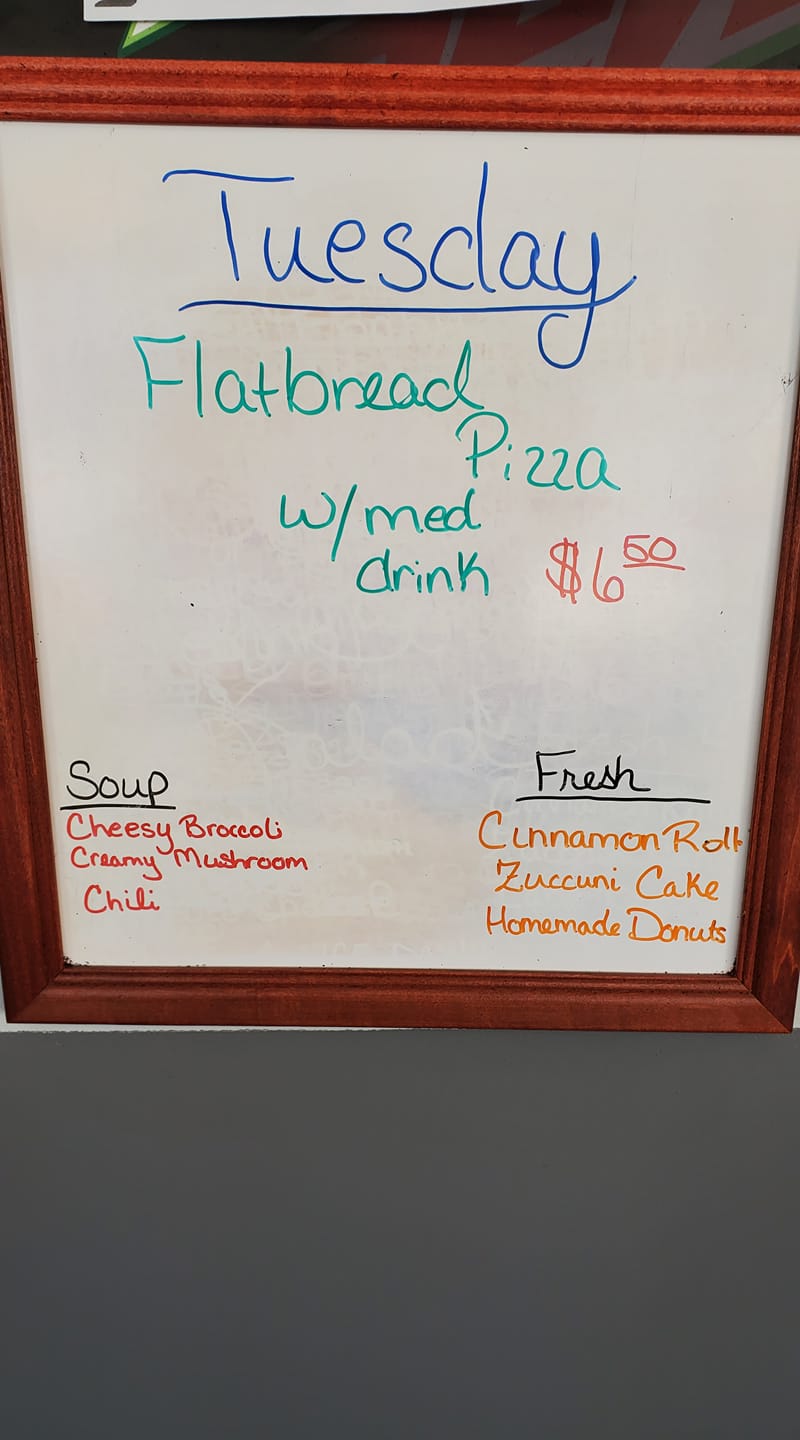 Tuesday
Flatbread
Pizza
w/med
drink $6 50
Soup
Cheesy Broccoli
Creamy Mushroom
Chili
Fresh
Cinnamon Rolls
Zuccuni Cake
Homemade Donuts